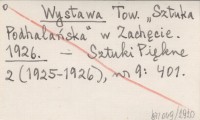 Wystawa Tow. „Sztuka
Podhalańska" w Zachęcie.
1926. — Sztuki Piękne
2 (1925-1926), nr 9: 401.